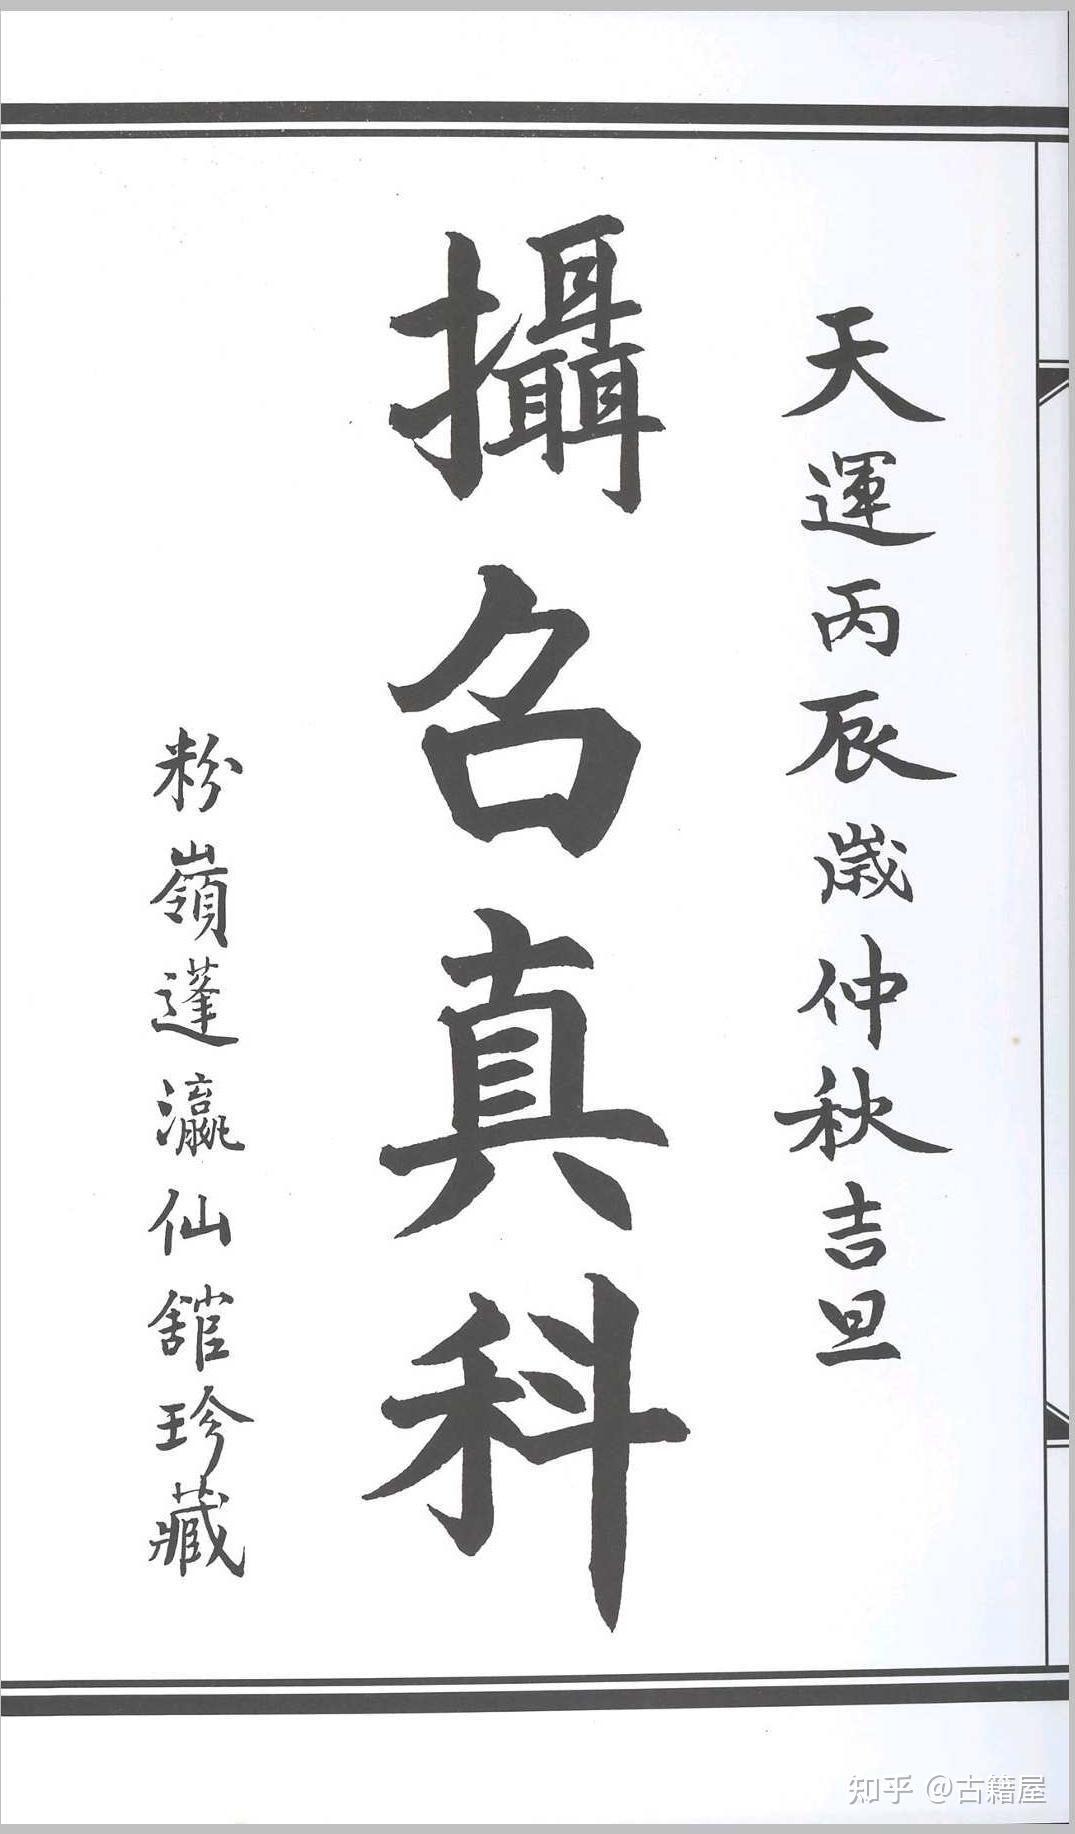 天運丙辰歲仲秋吉旦
攝召真科
粉嶺蓬瀛仙館珍藏
知乎 @古籍屋